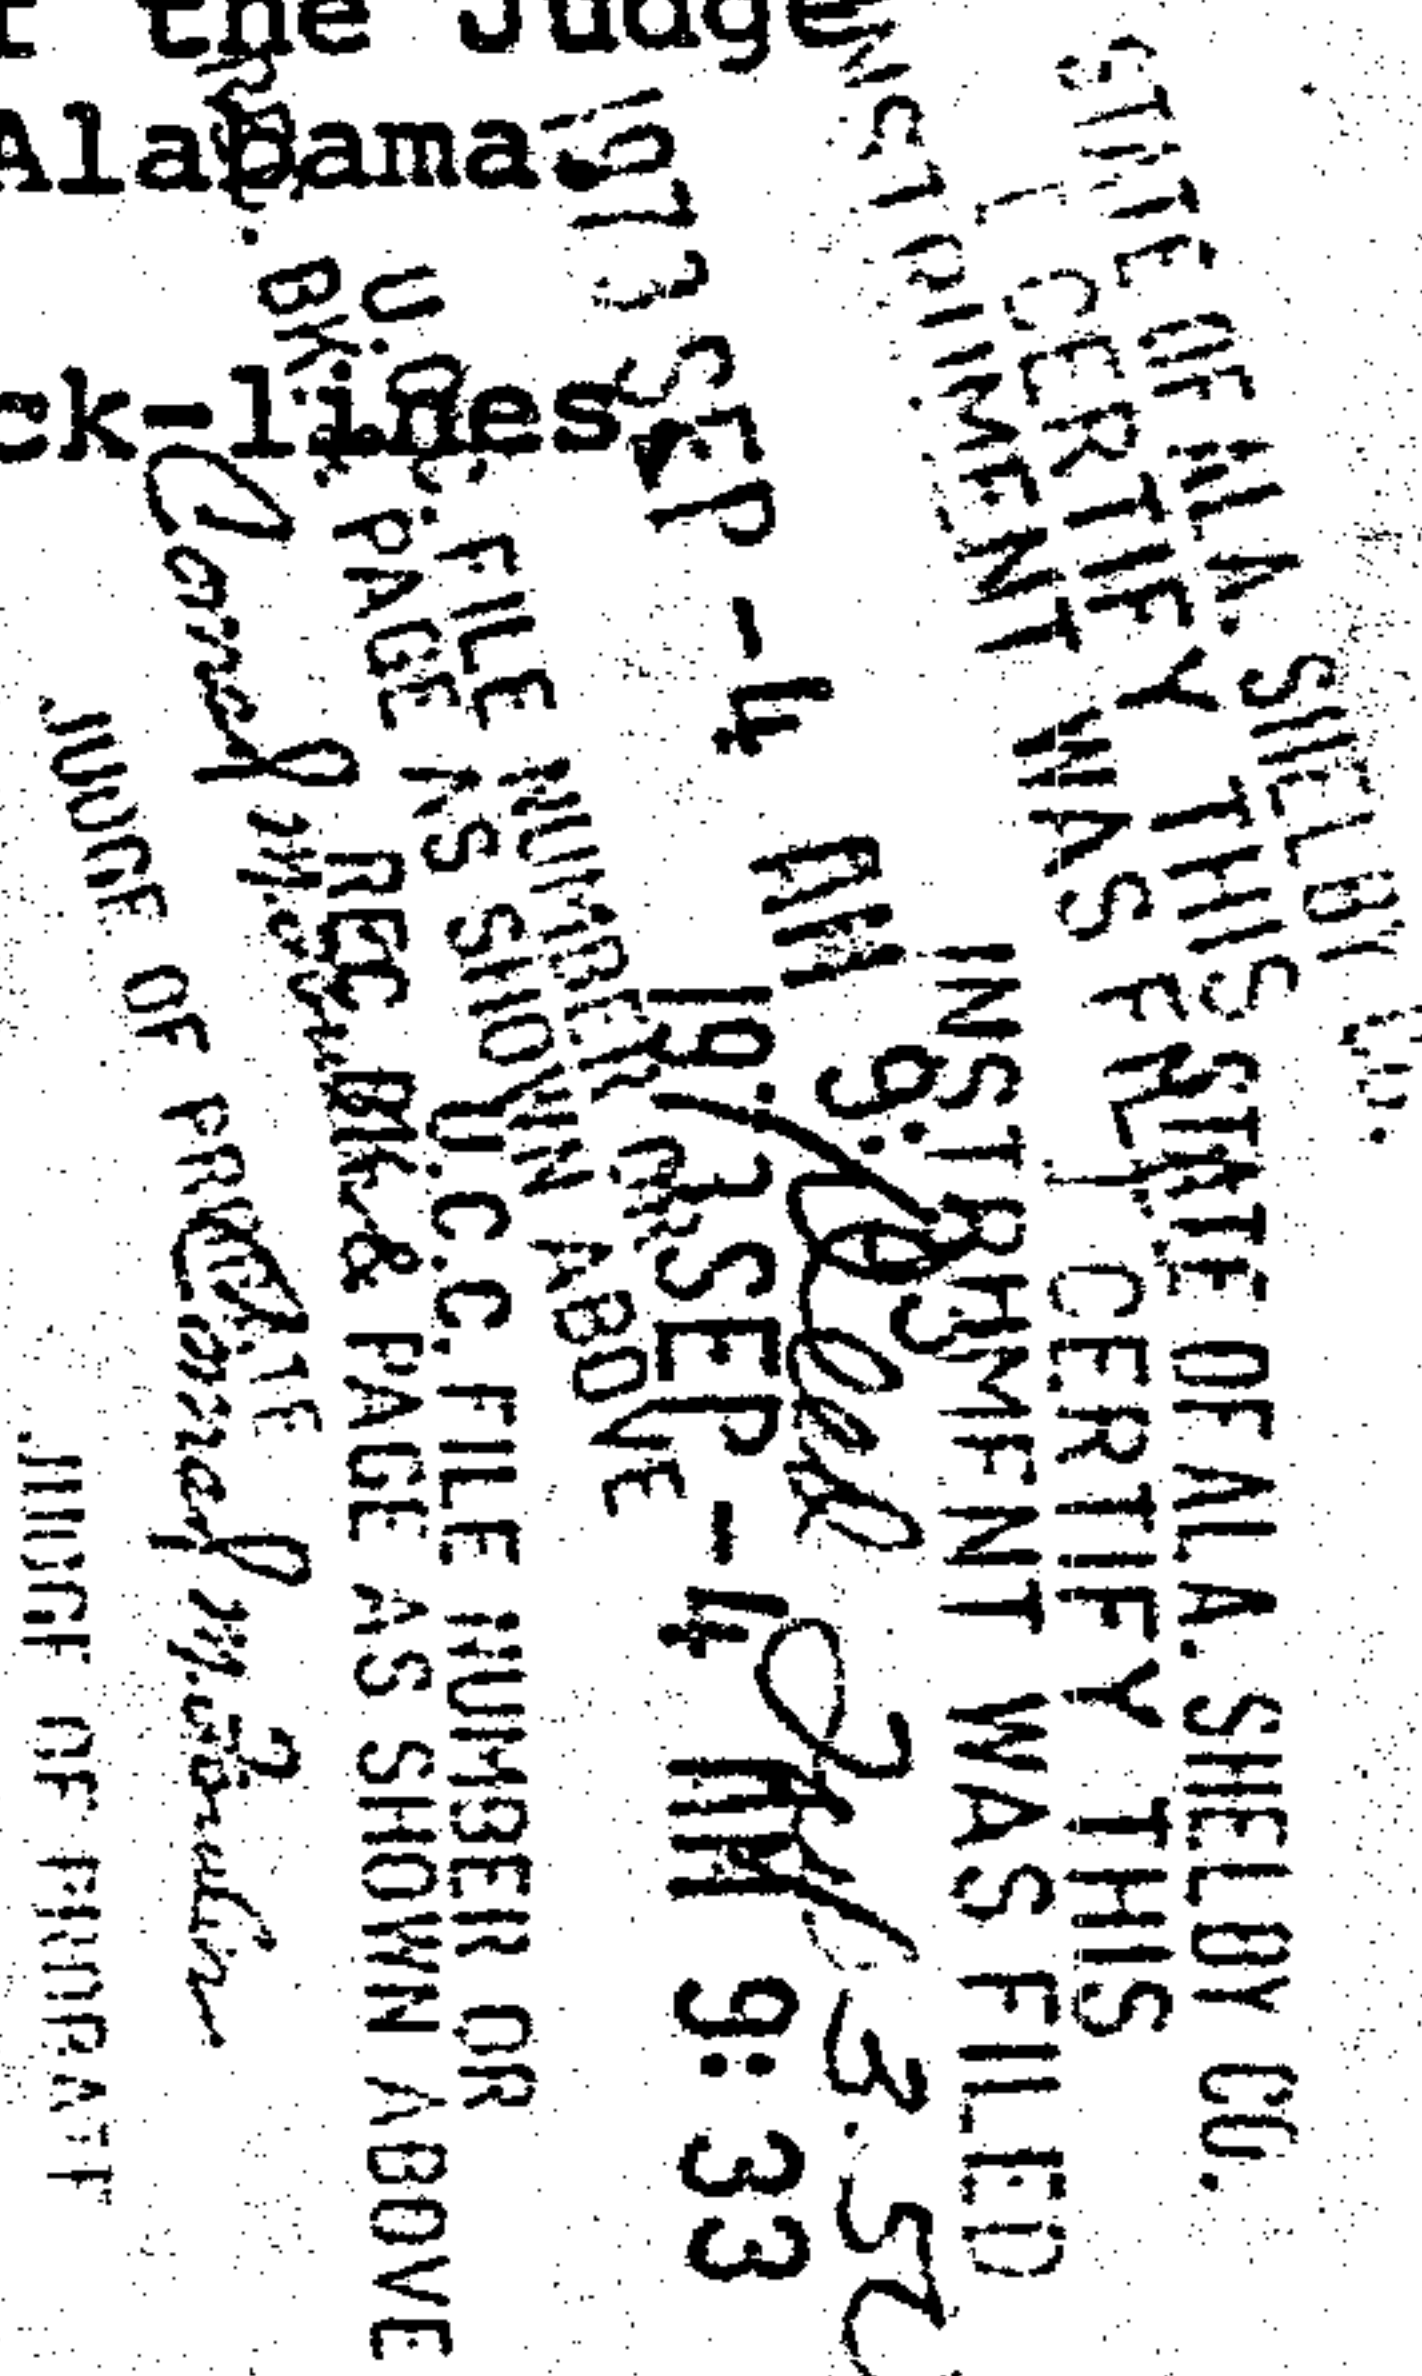 the Judge
Alabama
ck-lines
STATE OF ALA. SHELBY CO.
I CERTIFY THIS
INSTRUMENT WAS
1973 SEP -4 AM 9:
U.C.C. FILE NUMBER OR
REC. BK. & PAGE AS SHOWN ABOVE
JUDGE OF PROBATE
STATE OF ALA. SHELBY CO.
I CERTIFY THIS
INSTRUMENT WAS FILED
Deed
3.50
1973 SEP -4 AM 9:33
U.C.C. FILE NUMBER OR
REC. BK. & PAGE AS SHOWN ABOVE
JUDGE OF PROBATE